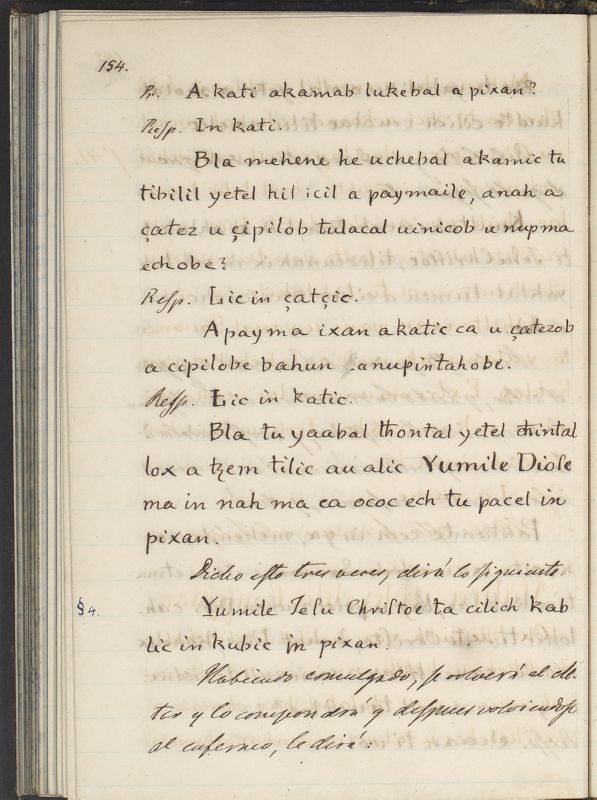 154.
Pr. A kati akamab lukebal a pixan?
Resp. In kati.
Bla mehene he uchebal akamic tu
tibilil yetel hil icil a paymaile, anah a
çatez u çipilob tulacal uinicob u nupma
echobe?
Resp. Lic in çatçic.
A payma ixan akatic ca u çatezob
a cipilobe bahun anupintahobe.
Resp. Lic in katic.
Bla tu yaabal thontal yetel chintal
lox a tzem tilic au alic Yumile Diose
ma in nah ma ca ococ ech tu pacel in
pixan.
Dicho esto tres veces, dirá lo siguiente.
§4. Yumile Jesu Christoe ta cilich kab
lic in kubic in pixan.
Habiendo comulgado, se volverá al al-
tar y lo compondrá y despues volviendose
al enfermo, le dirá: